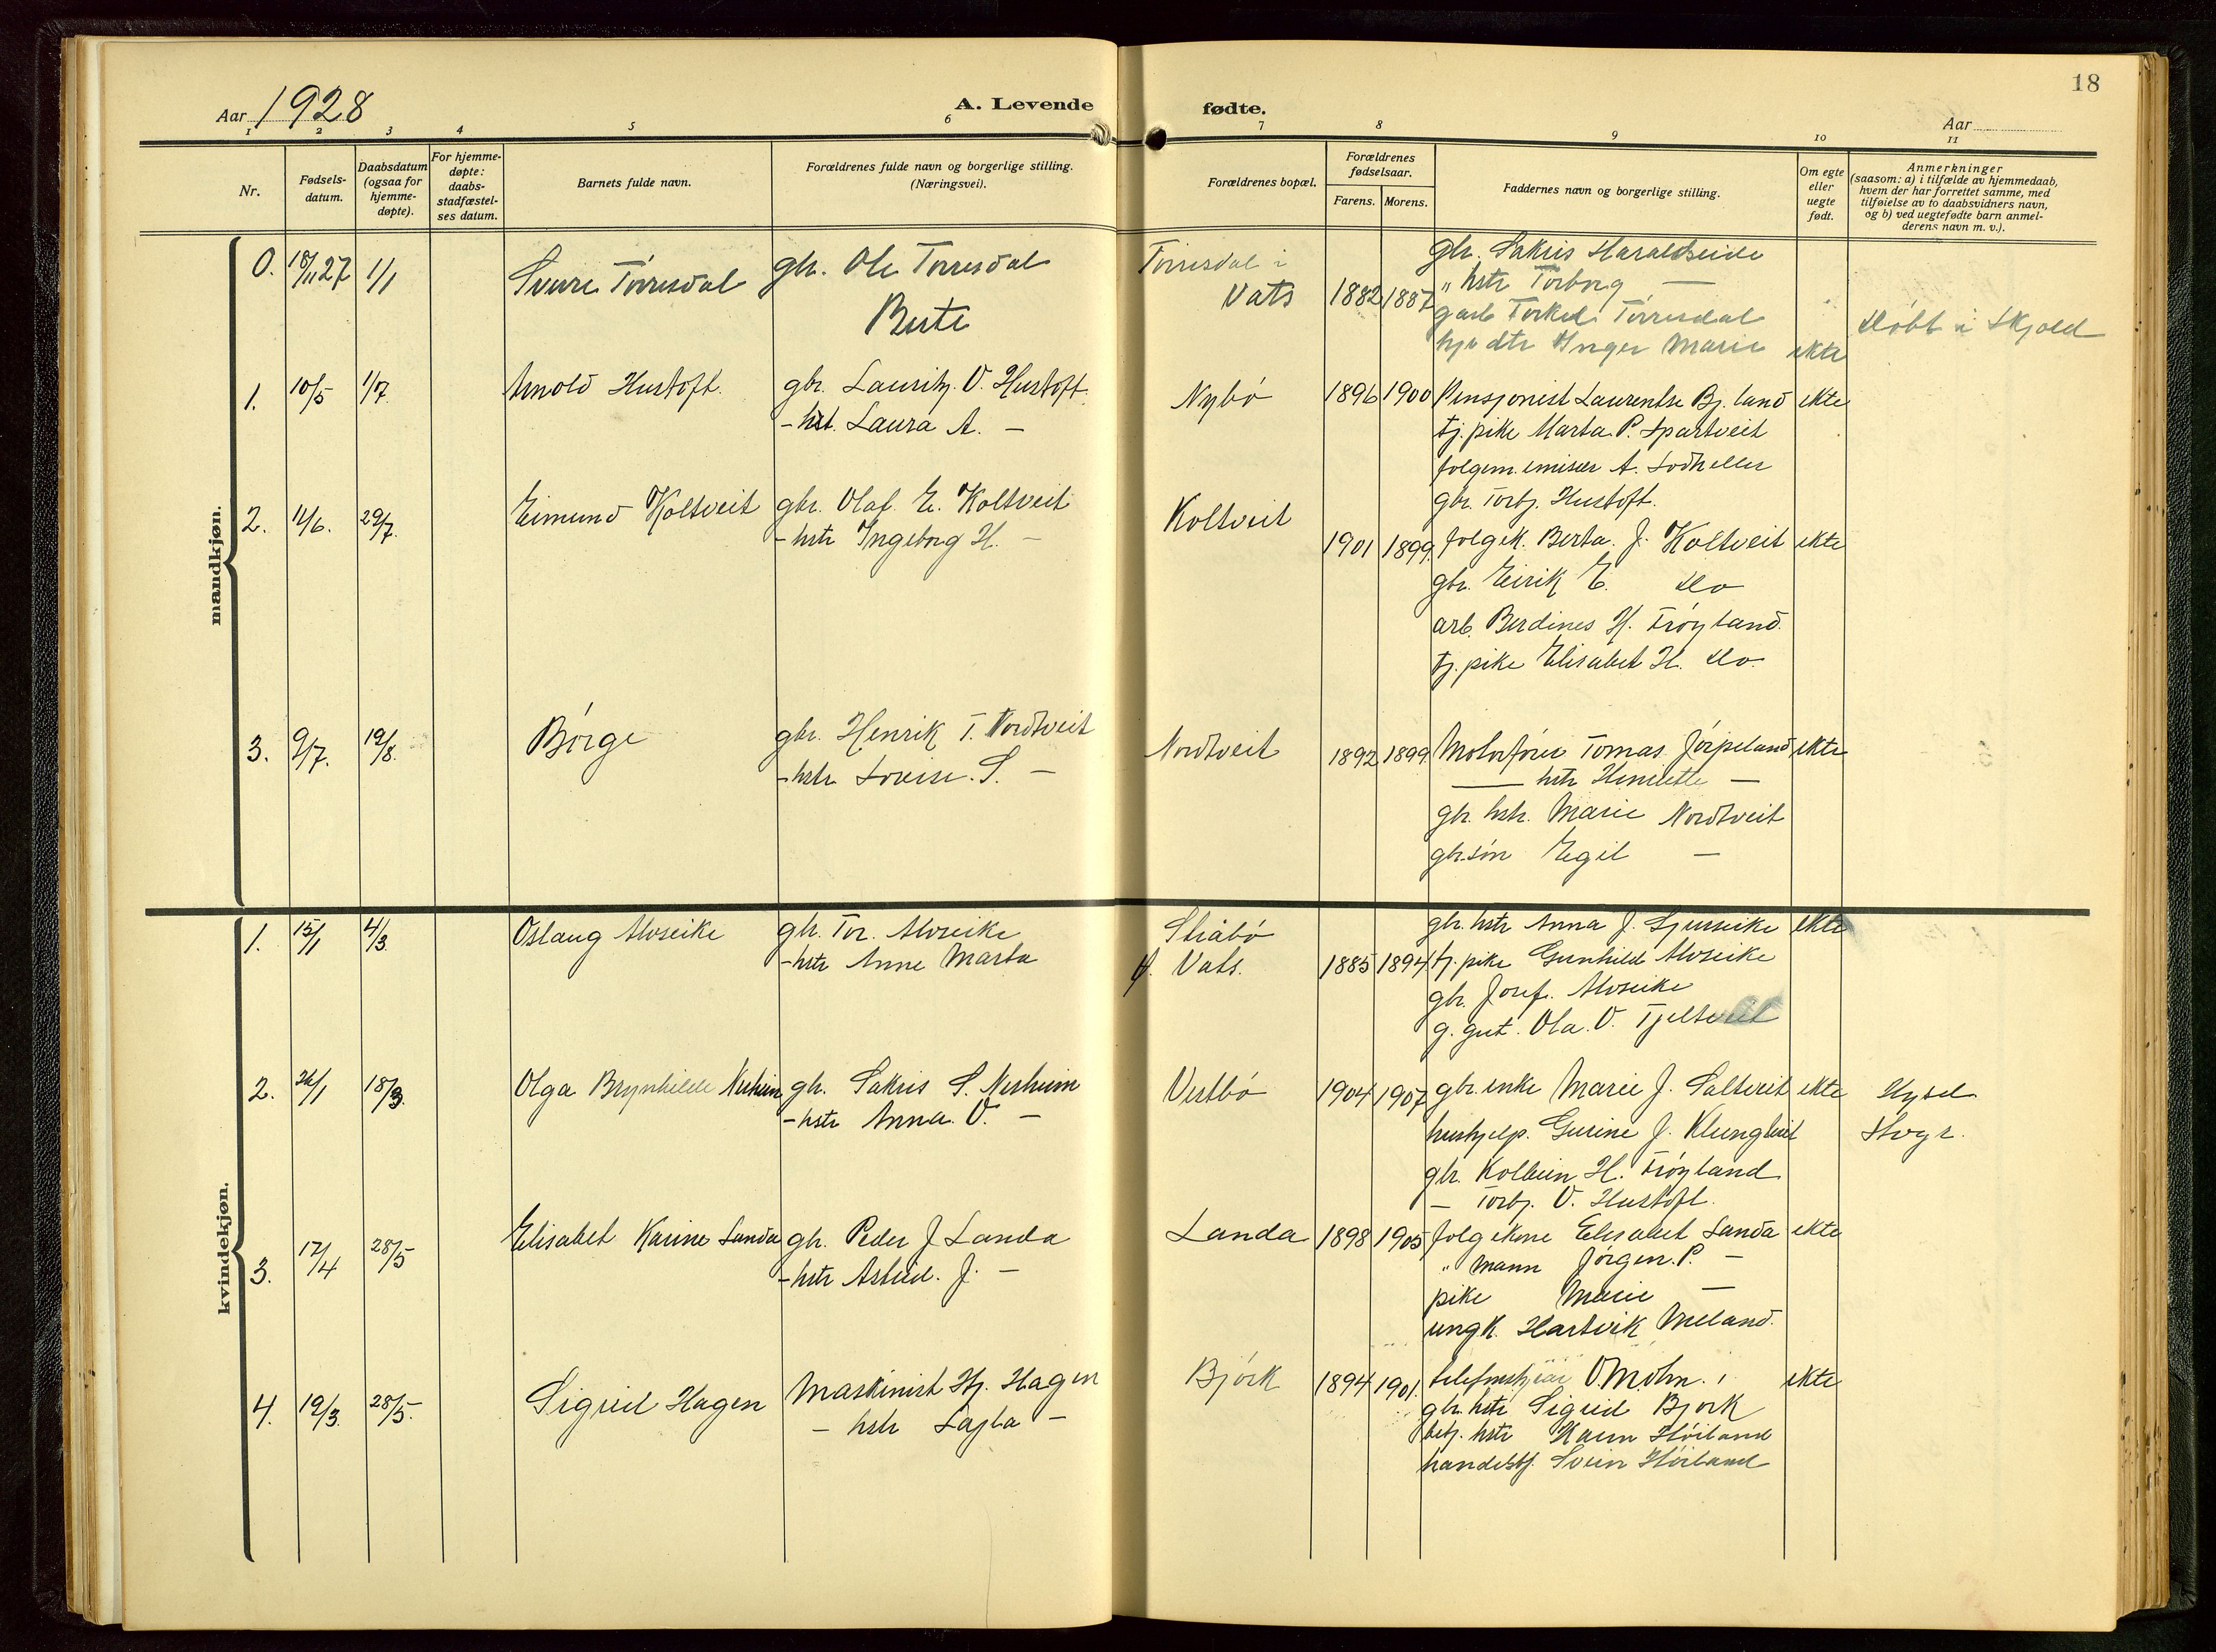 18
Aar 1928
A. Levende fødte.
Aar
1 2 3 4 5 6 7 8 9 10 11
Nr.
Fødsels-
datum.
Daabsdatum
(ogsaa for
hjemme-
døpte).
For hjemme-
døpte:
daabs-
stadfæstel-
ses datum.
Barnets fulde navn.
Forældrenes fulde navn og borgerlige stilling.
(Næringsvei).
Forældrenes bopæl.
Forældrenes
fødselsaar.
Farens. Morens.
Faddernes navn og borgerlige stilling.
Om egte
eller
uegte
født.
Anmerkninger
(saasom: a) i tilfælde av hjemmedaab,
hvem der har forrettet samme, med
tilføielse av to daabsvidners navn,
og b) ved uegtefødte barn anmel-
derens navn m. v.).
mandkjøn.
0. 18/11 27 1/1 Sverre Tørresdal gbr. Ole Tørresdal
Berte
Tørresdal i
Vats 1882 1887
gbr. Sakris Haraldseide
" hstr Torborg —
garb Torkel Tørresdal
Inger Marie ekte
døbt i Skjold
1. 10/5 1/7 Arnold Hustoft. gbr. Lauritz. O. Hustoft.
- hst. Laura A. —
Nybø 1896 1900 Pensjonist Laurentse Bj. land ekte
tj. pike Marta P. Spartveit
folgem. emisær A. Lodheller
gbr. Torbj. Hustoft.
2. 11/6. 29/7. Eimund Koltveit gbr. Olaf E. Koltveit
- hstr Ingeborg H. —
Koltveit
1901 1899. folgek. Berta. J. Koltveit ekte
gbr. Eirik E. do
arb. Berdines H. Frøyland.
tj. pike Elisabet H. do.
3. 9/7. 19/8. Børge gbr. Henrik T. Nordtveit
- hstr Lovise. S. —
Nordtveit 1892 1899. Motorfører Tomas Jørpeland ekte
— hstr Henriette —
gbr. hstr. Marie Nordtveit
gbr. søn Egil —
kvindekjøn.
1. 15/1 4/3. Oslaug Alvseike gbr. Tor. Alvseike
- hstr Anne Marta
Stråbø
Ø. Vats. 1885 1894
gbr. hstr Anna J. Sjurseike ekte
tj. pike Gunhild Alvseike
gbr. Josef. Alvseike
g. gut. Ola. O. Tjeltveit
2. 26/1 18/3. Olga Brynhilde Nesheim gbr. Sakris S. Nesheim
- hstr Anna. O. —
Vestbø 1904 1907 gbr. enke Marie J. Saltveit ekte
hushjelp. Gurine J. Klungtveit
gbr. Kolbein H. Frøyland
— Torbj. O. Hustoft.
3. 17/4 28/5 Elisabet Karine Landa gbr. Peder J. Landa
- hstr Astrid. J. —
Landa 1898 1905 folgekone Elisabet Landa ekte
" mann Jørgen. P. —
pike Marie —
ungk. Hartvik Meland.
4. 19/3. 28/5. Sigrid Hagen Maskinist Hj. Hagen
— hstr Lajla —
Bjørk 1894 1901. O. Mohn. ekte
gbr. hstr Sigrid Bjørk
hstr Karen Høiland
handelsbj. Svein Høiland